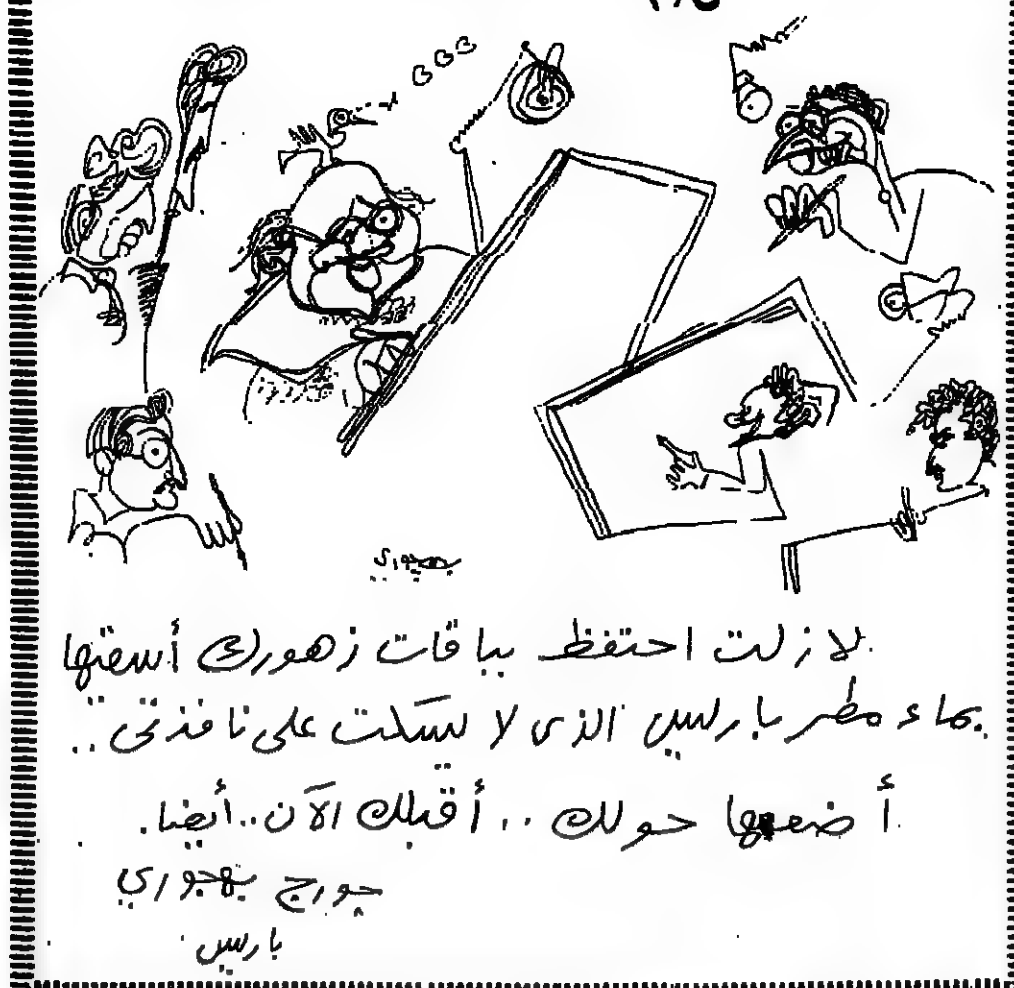 بهجوري
لازلت احتفظ بباقات زهورك أسقيها
بماء مطر باريس الذى لا يسكت على نافذتى ..
أضعها حولك .. أقبلك الآن .. أيضا .
جورج بهجوري
باريس